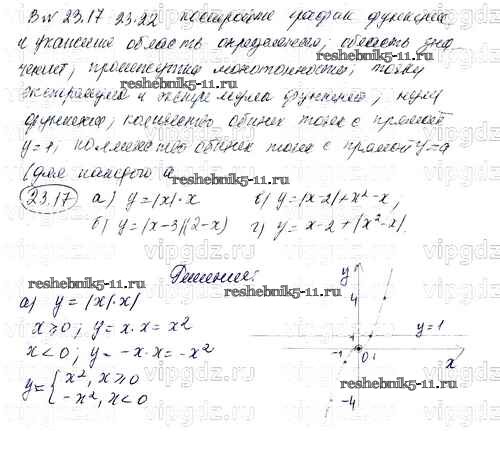 В № 23.17 23.22 постройте график функции
и укажите область определения, область зна
чений, промежутки монотонности, точки
reshebnik5-11.ru
reshebnik5-11.ru
экстремума и экстремумы функции, нули
функции, количество общих точек с прямой
y=1, количество общих точек с прямой y=a
(для каждого a
reshebnik5-11.ru
23.17 а) y=|x|·x в) y=|x-2|+x²-x,
б) y=|x-3|(2-x) г) y=x-2+|x²-x|.
vipgdz.ru
Решение:
reshebnik5-11.ru
reshebnik5-11.ru
а) y=|x|·x|
x≥0; y=x·x=x²
x<0; y=-x·x=-x²
y={x², x≥0
-x², x<0
y
4
y=1
-1 0 1 x
reshebnik5-11.ru
-4